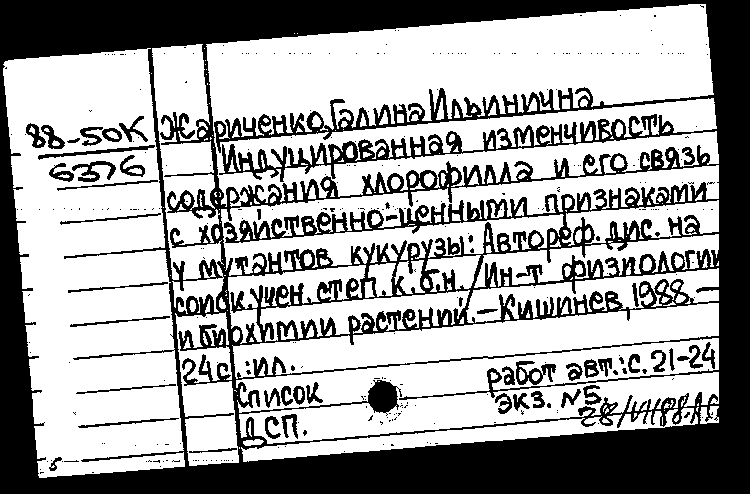 88-50К
6376
Жариченко, Галина Ильинична.
Индуцированная изменчивость
содержания хлорофилла и его связь
с хозяйственно-ценными признаками
у мутантов кукурузы: Автореф. дис. на
соиск. учен. степ. к.б.н. / Ин-т физиологии
и биохимии растений. – Кишинев, 1988. –
24 с.: ил.
Список работ авт.: с. 21-24
ДСП. экз. №5.
28/VII88
5